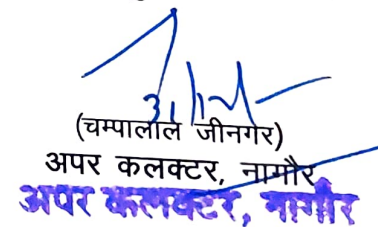 (चम्पालाल जीनगर)
अपर कलक्टर, नागौर
अपर कलक्टर, नागौर